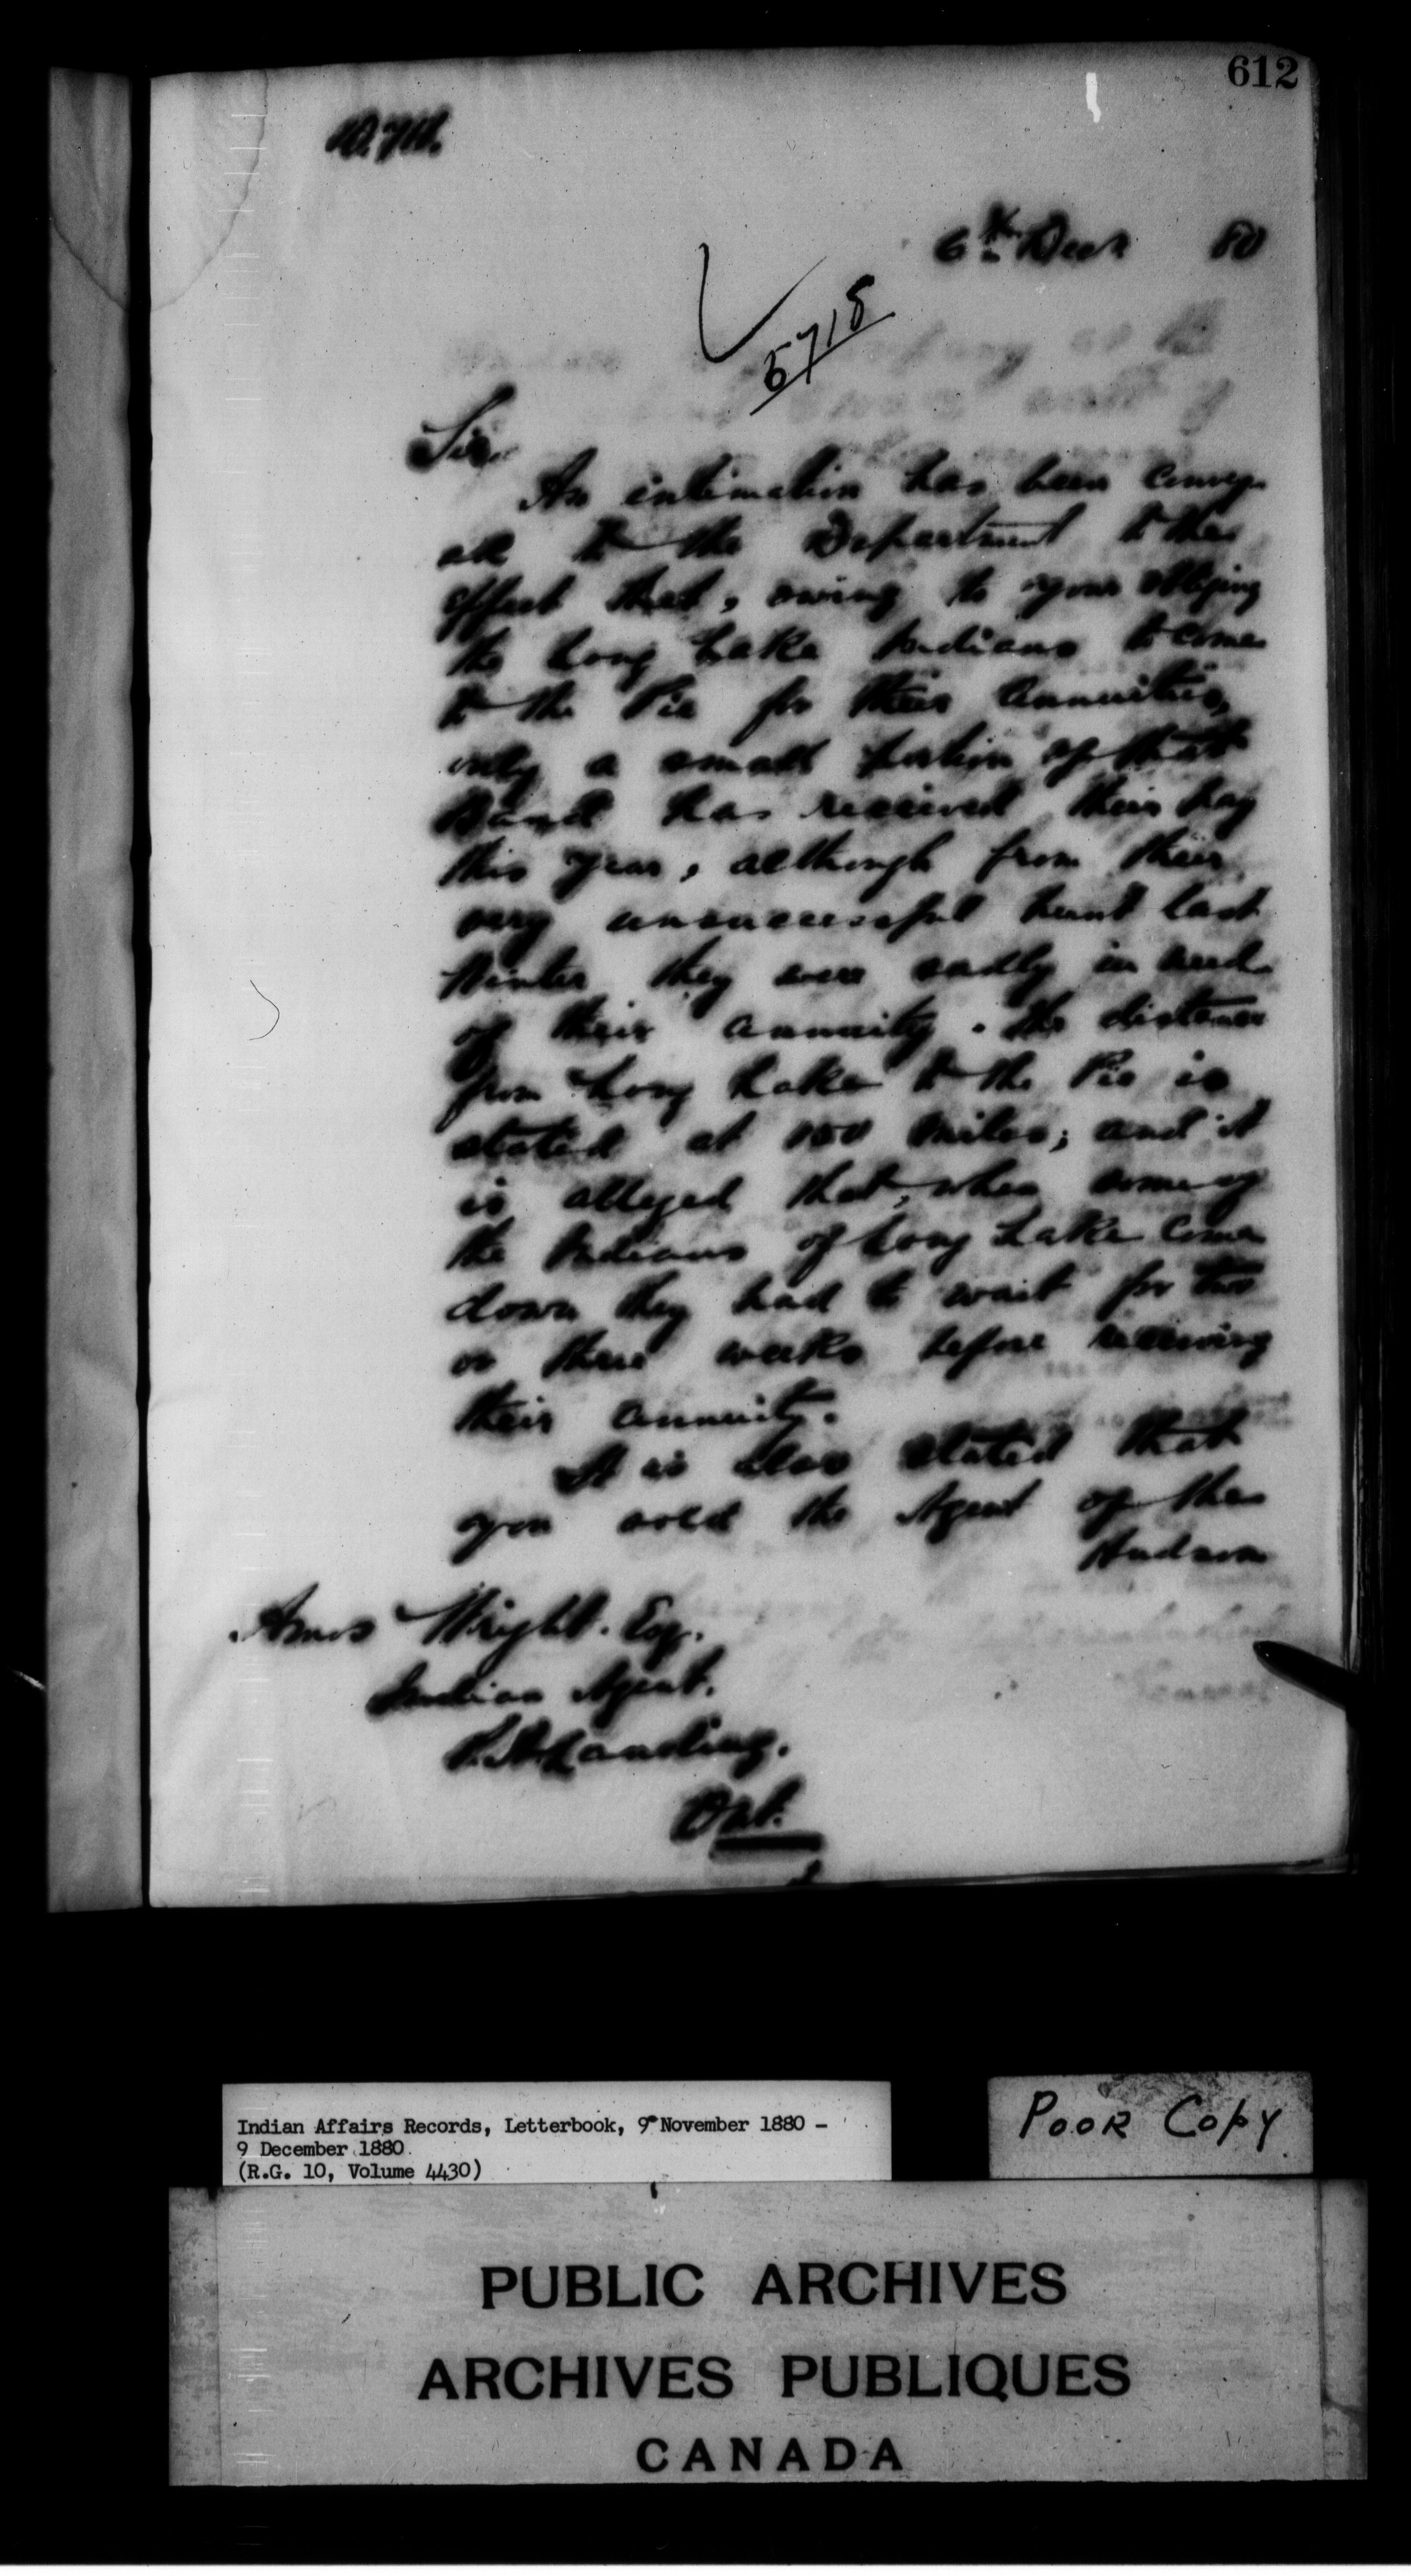 612
6th Decr 80
5718
Sir
An intimation has been convey-
ed to the Department to the
effect that, owing to your obliging
the Long Lake Indians to come
to the Pic for their Annuities,
only a small portion of that
Band has received their pay
this year, although from their
very unsuccessful hunt last
Winter they were sadly in need
of their annuity. The distance
from Long Lake to the Pic is
stated at 100 miles; and it
is alleged that, when some of
the Indians of Long Lake came
down they had to wait for two
or three weeks before receiving
their annuity.
It is also stated that
you the Agent of the
Hudson
Amos Wright. Esq.
Indian Agent.
P. A. Landing.
Ont.
Indian Affairs Records, Letterbook, 9 November 1880 -
9 December 1880
(R.G. 10, Volume 4430)
POOR COPY
PUBLIC ARCHIVES
ARCHIVES PUBLIQUES
CANADA